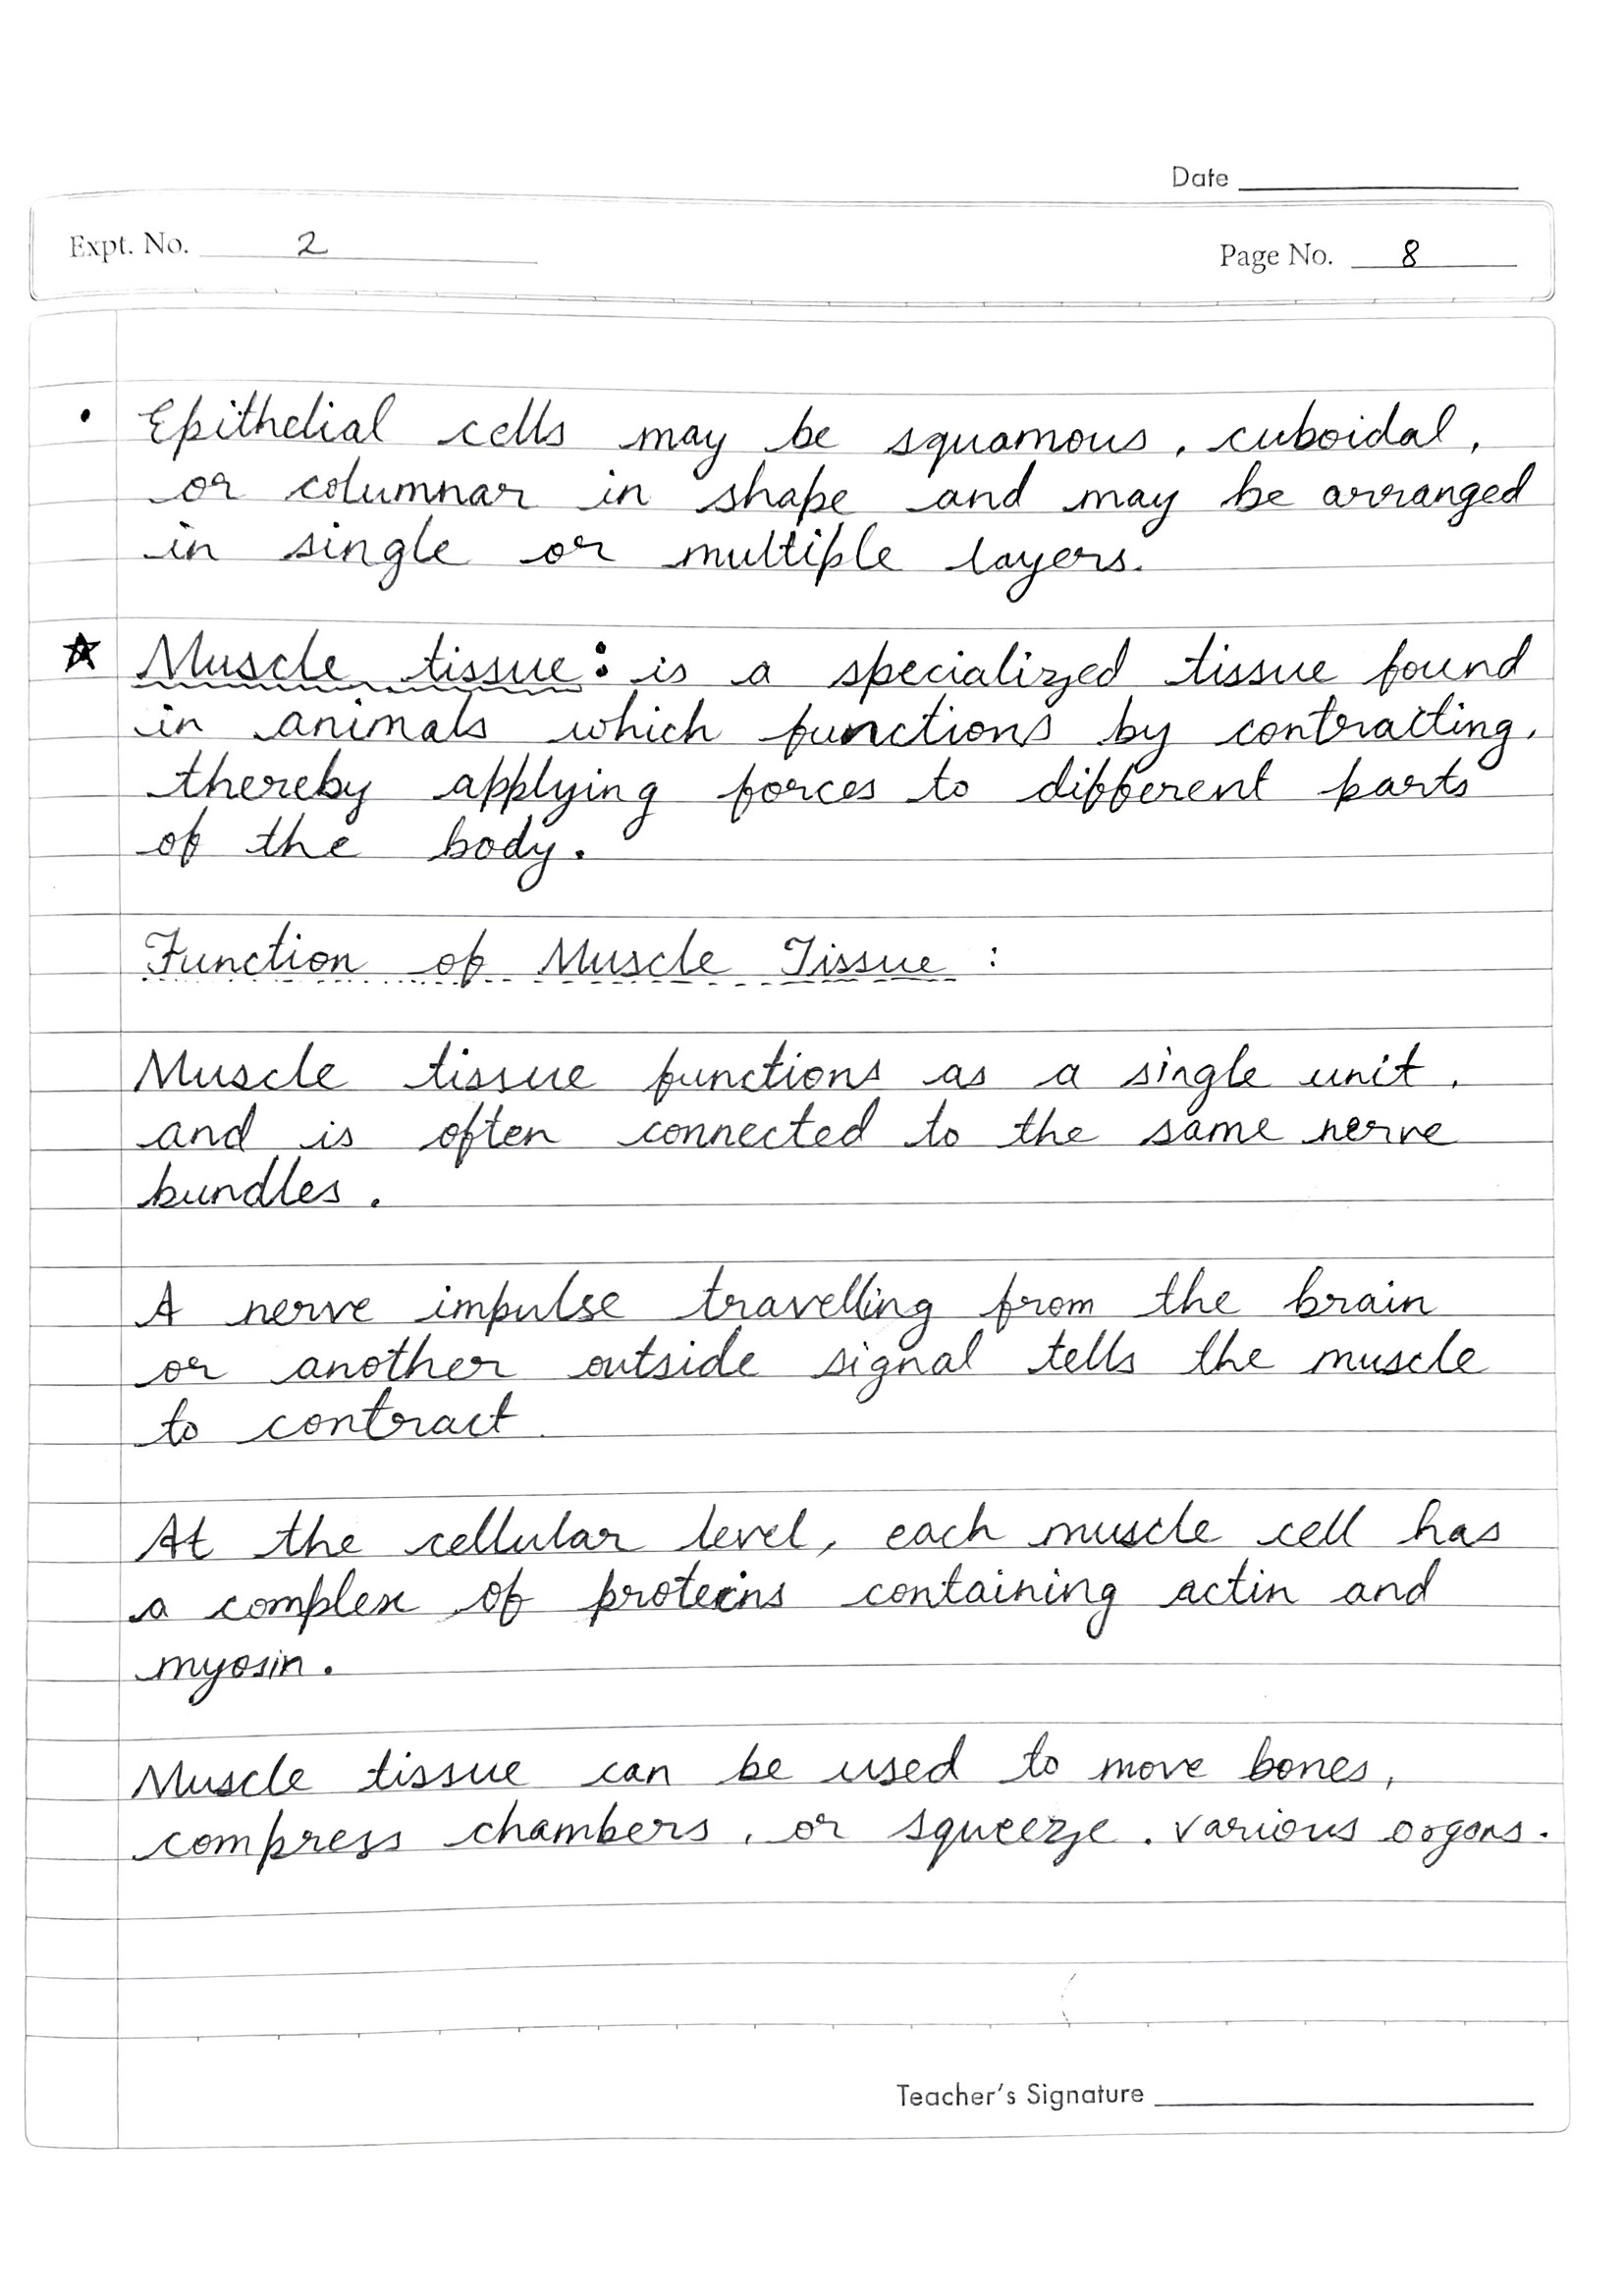 Date
Expt. No. 2
Page No. 8
• Epithelial cells may be squamous, cuboidal,
or columnar in shape and may be arranged
in single or multiple layers.
☆ Muscle tissue: is a specialized tissue found
in animals which functions by contracting,
thereby applying forces to different parts
of the body.
Function of Muscle Tissue :
Muscle tissue functions as a single unit,
and is often connected to the same nerve
bundles.
A nerve impulse travelling from the brain
or another outside signal tells the muscle
to contract.
At the cellular level, each muscle cell has
a complex of proteins containing actin and
myosin.
Muscle tissue can be used to move bones,
compress chambers, or squeeze. various organs.
Teacher's Signature